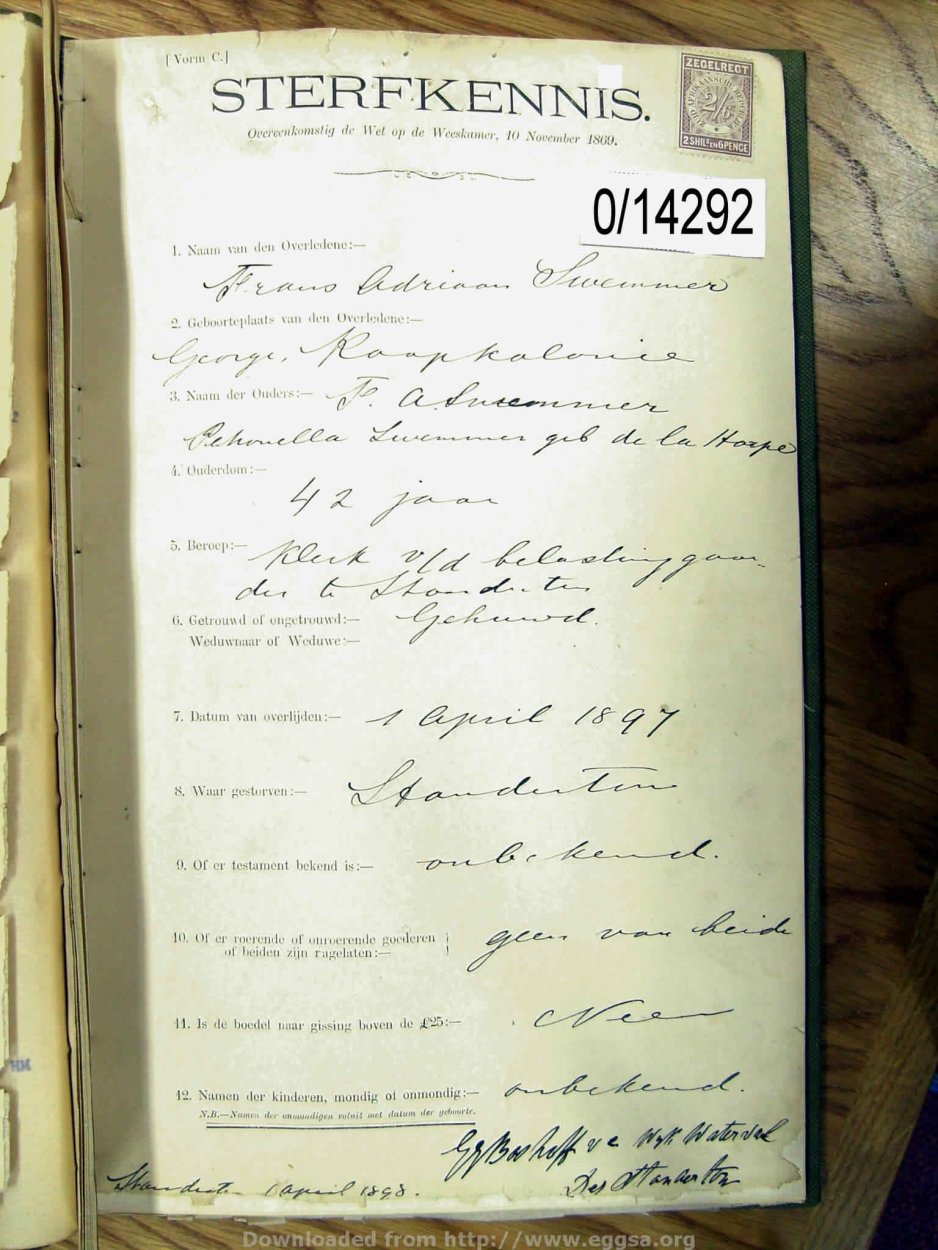 [Vorm C.]
STERFKENNIS.
Overeenkomstig de Wet op de Weeskamer, 10 November 1869.
ZEGELREGT
2/6
2 SHILn EN 6 PENCE
0/14292
1. Naam van den Overledene:—
Frans Adriaan Swemmer
2. Geboorteplaats van den Overledene:—
George, Kaapkolonie
3. Naam der Ouders:— F. A. Swemmer
Petronella Swemmer geb de la Harpe
4. Ouderdom:—
42 jaar
5. Beroep:— Klerk v/d belastinggaar-
der te Standerton
6. Getrouwd of ongetrouwd:— Gehuwd.
Weduwnaar of Weduwe:—
7. Datum van overlijden:— 1 April 1897
8. Waar gestorven:— Standerton
9. Of er testament bekend is:— onbekend.
10. Of er roerende of onroerende goederen } geen van beide
of beiden zijn nagelaten:—
11. Is de boedel naar gissing boven de £25:— Neen
12. Namen der kinderen, mondig of onmondig:— onbekend.
N.B.—Namen der onmondigen voluit met datum der geboorte.
Boshoff v c Wyk Waterval
Standerton 1 April 1898.
Des Standerton
Downloaded from http://www.eggsa.org